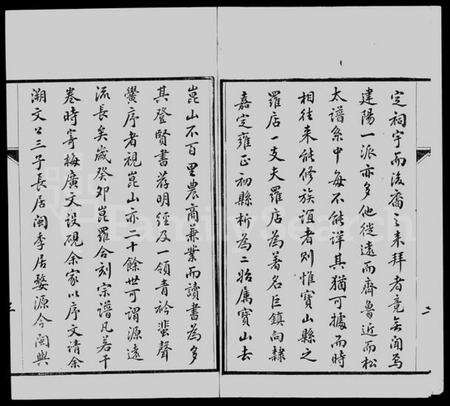 定祠宇而後裔之來拜者竟無聞焉
建陽一派亦多他徙遠而齊魯近而松
太譜系中每不能詳其猶可據而時
相往來能修族誼者則惟寶山縣之
羅店一支夫羅店為著名巨鎮向隸
嘉定雍正初縣析為二始属寶山去
崑山不百里農商兼業而讀書為多
其登賢書薦明經及一領青衿蜚聲
黌序者視崑山亦二十餘世可謂源遠
流長矣歲癸卯崑羅合刻宗譜凡若干
卷時寄梅廣文設硯余家以序文請余
溯文公三子長居閩季居婺源今閩與
二